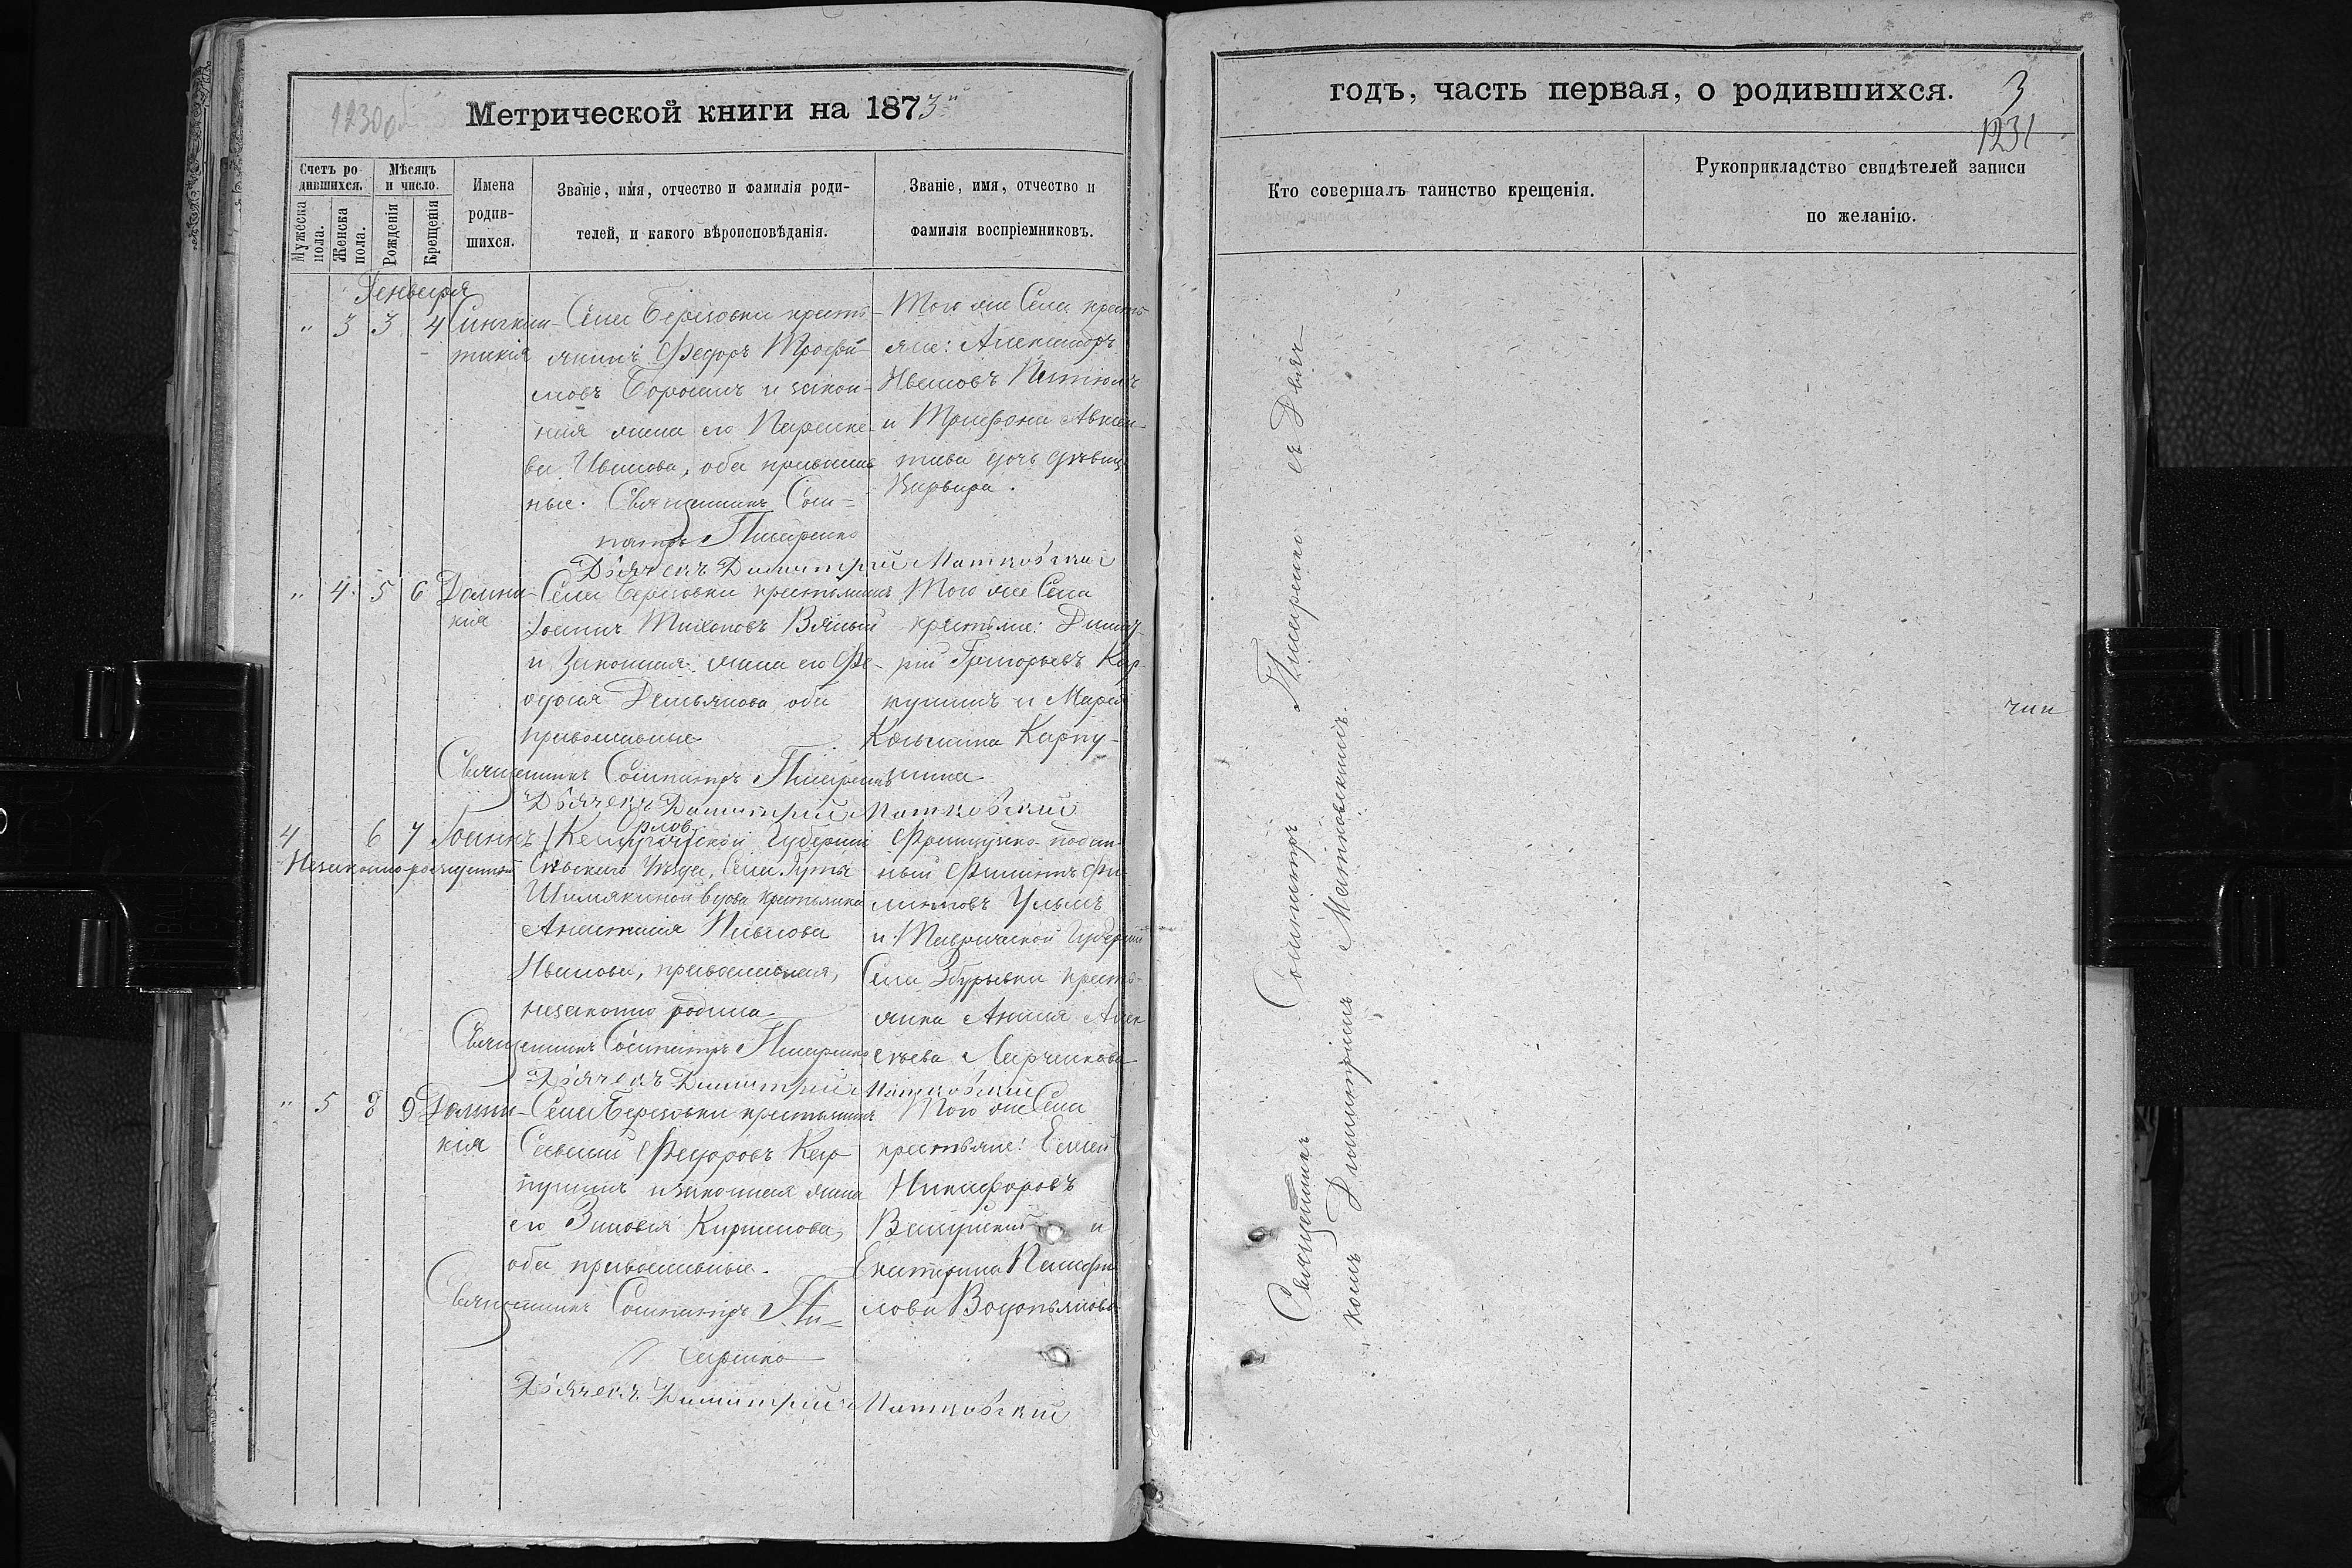 1230 об
Метрической книги на 1873й
Счетъ ро-
дившихся.
Мѣсяцъ
и число.
Имена
родив-
шихся.
Званіе, имя, отчество и фамилія роди-
телей, и какого вѣроисповѣданія.
Званіе, имя, отчество и
фамилія воспріемниковъ.
Мужеска
пола.
Женска
пола.
Рожденія
Крещенія
Генваря
" 3 3 4 Сингкли-
тикія
Села Березовки кресть-
янинъ Федоръ Трофи-
мовъ и закон-
ная жена его Параске-
ва Иванова, оба православ-
ные. Священникъ Соси-
патръ Писаренко
Дьячекъ Димитрій Матковскій
Того же Села кресть-
яне: Александръ
Ивановъ
и Трифона
дочь дѣвица
Варвара.
" 4 5 6 Домни-
кія
Села Березовки крестьянинъ
Іоаннъ Тихоновъ Вялый
и законная жена его Фе-
одосія Демьянова оба
православные
Священникъ Сосипатръ Писаренко
Дьячекъ Димитрій Матковскій
Того же Села
крестьяне: Димит-
рій Григорьевъ Кар-
пушинъ и Марія
Козьмина Карпу-
шина
4 6 7 Іоаннъ
Незаконнорожденный
рлов
Губерніи
Сѣвскаго Уѣзда, Села Гуты
Шемякиной вдова крестьянка
Анастасія Павлова
Иванова, православная,
незаконно родила.
Священникъ Сосипатръ Писаренко
Дьячекъ Димитрій Матковскій
Французко-поддан-
ный Филиппъ Фи-
липповъ Ульмъ
и Таврической Губерніи
Села Збурьевки кресть-
янка Анна Алек-
сѣева Марченкова
" 5 8 9 Домни-
кія
Села Березовки крестьянинъ
Савелій Федоровъ Кар-
пушинъ и законная жена
его Зиновія Кириллова,
оба православные.
Священникъ Сосипатръ Пи-
саренко
Дьячекъ Димитрій Матковскій
Того же Села
крестьяне:
Никифоровъ
и
Екатерина Памфи-
лова Водопьянова
годъ, часть первая, о родившихся.
3
1231
Кто совершалъ таинство крещенія.
Рукоприкладство свидѣтелей записи
по желанію.
Священникъ Сосипатръ Писаренко съ Дьяч-
комъ Димитріемъ Матковскимъ.